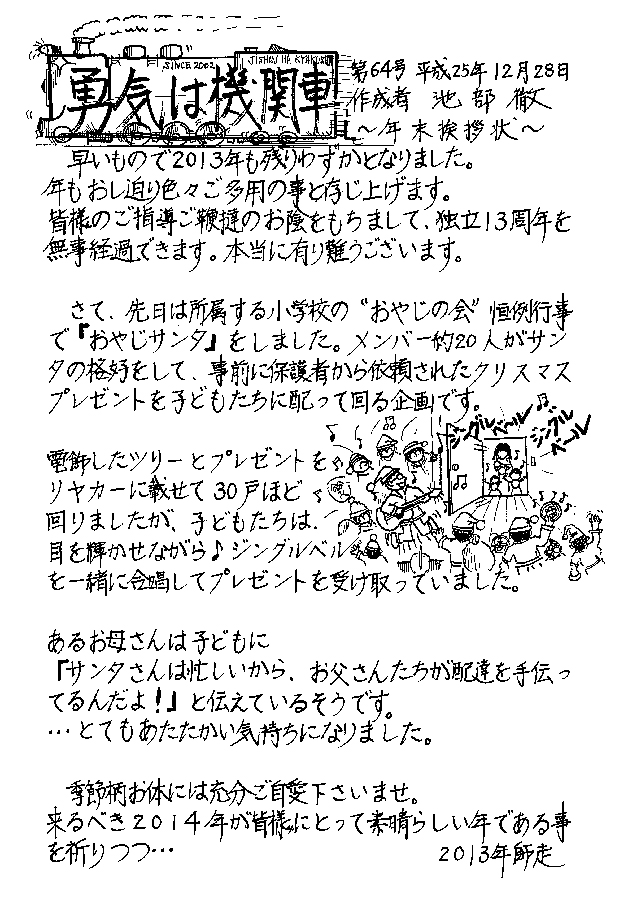 SINCE 2002
JISHOU HA KYAKUSHI
勇気は機関車
第64号 平成25年12月28日
作成者 池部 徹
～年末挨拶状～
早いもので2013年も残りわずかとなりました。
年もおし迫り色々ご多用の事と存じ上げます。
皆様のご指導ご鞭撻のお陰をもちまして、独立13周年を
無事経過できます。本当に有り難うございます。
さて、先日は所属する小学校の“おやじの会”恒例行事
で『おやじサンタ』をしました。メンバー約20人がサン
タの格好をして、事前に保護者から依頼されたクリスマス
プレゼントを子どもたちに配って回る企画です。
ジングルベール♫
ジングルベール
電飾したツリーとプレゼントを
リヤカーに載せて30戸ほど
回りましたが、子どもたちは、
目を輝かせながら♪ジングルベル
を一緒に合唱してプレゼントを受け取っていました。
あるお母さんは子どもに
『サンタさんは忙しいから、お父さんたちが配達を手伝っ
てるんだよ！』と伝えているそうです。
…とてもあたたかい気持ちになりました。
季節柄お体には充分ご自愛下さいませ。
来るべき2014年が皆様にとって素晴らしい年である事
を祈りつつ…
2013年師走